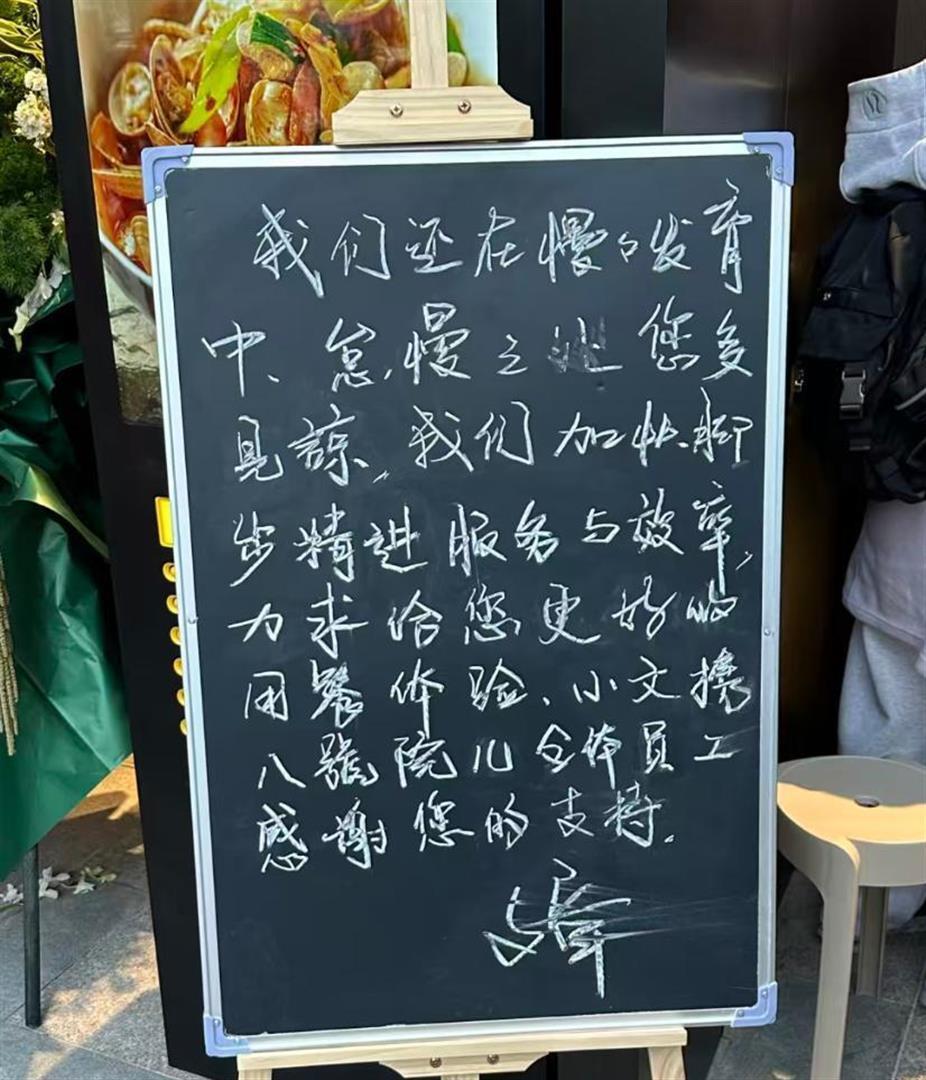 我们还在慢々发育
中、怠慢之处您多
見諒,我们加快脚
步精进服务与效率,
力求给您更好的
用餐体验、小文携
八號院儿全体员工
感谢您的支持.